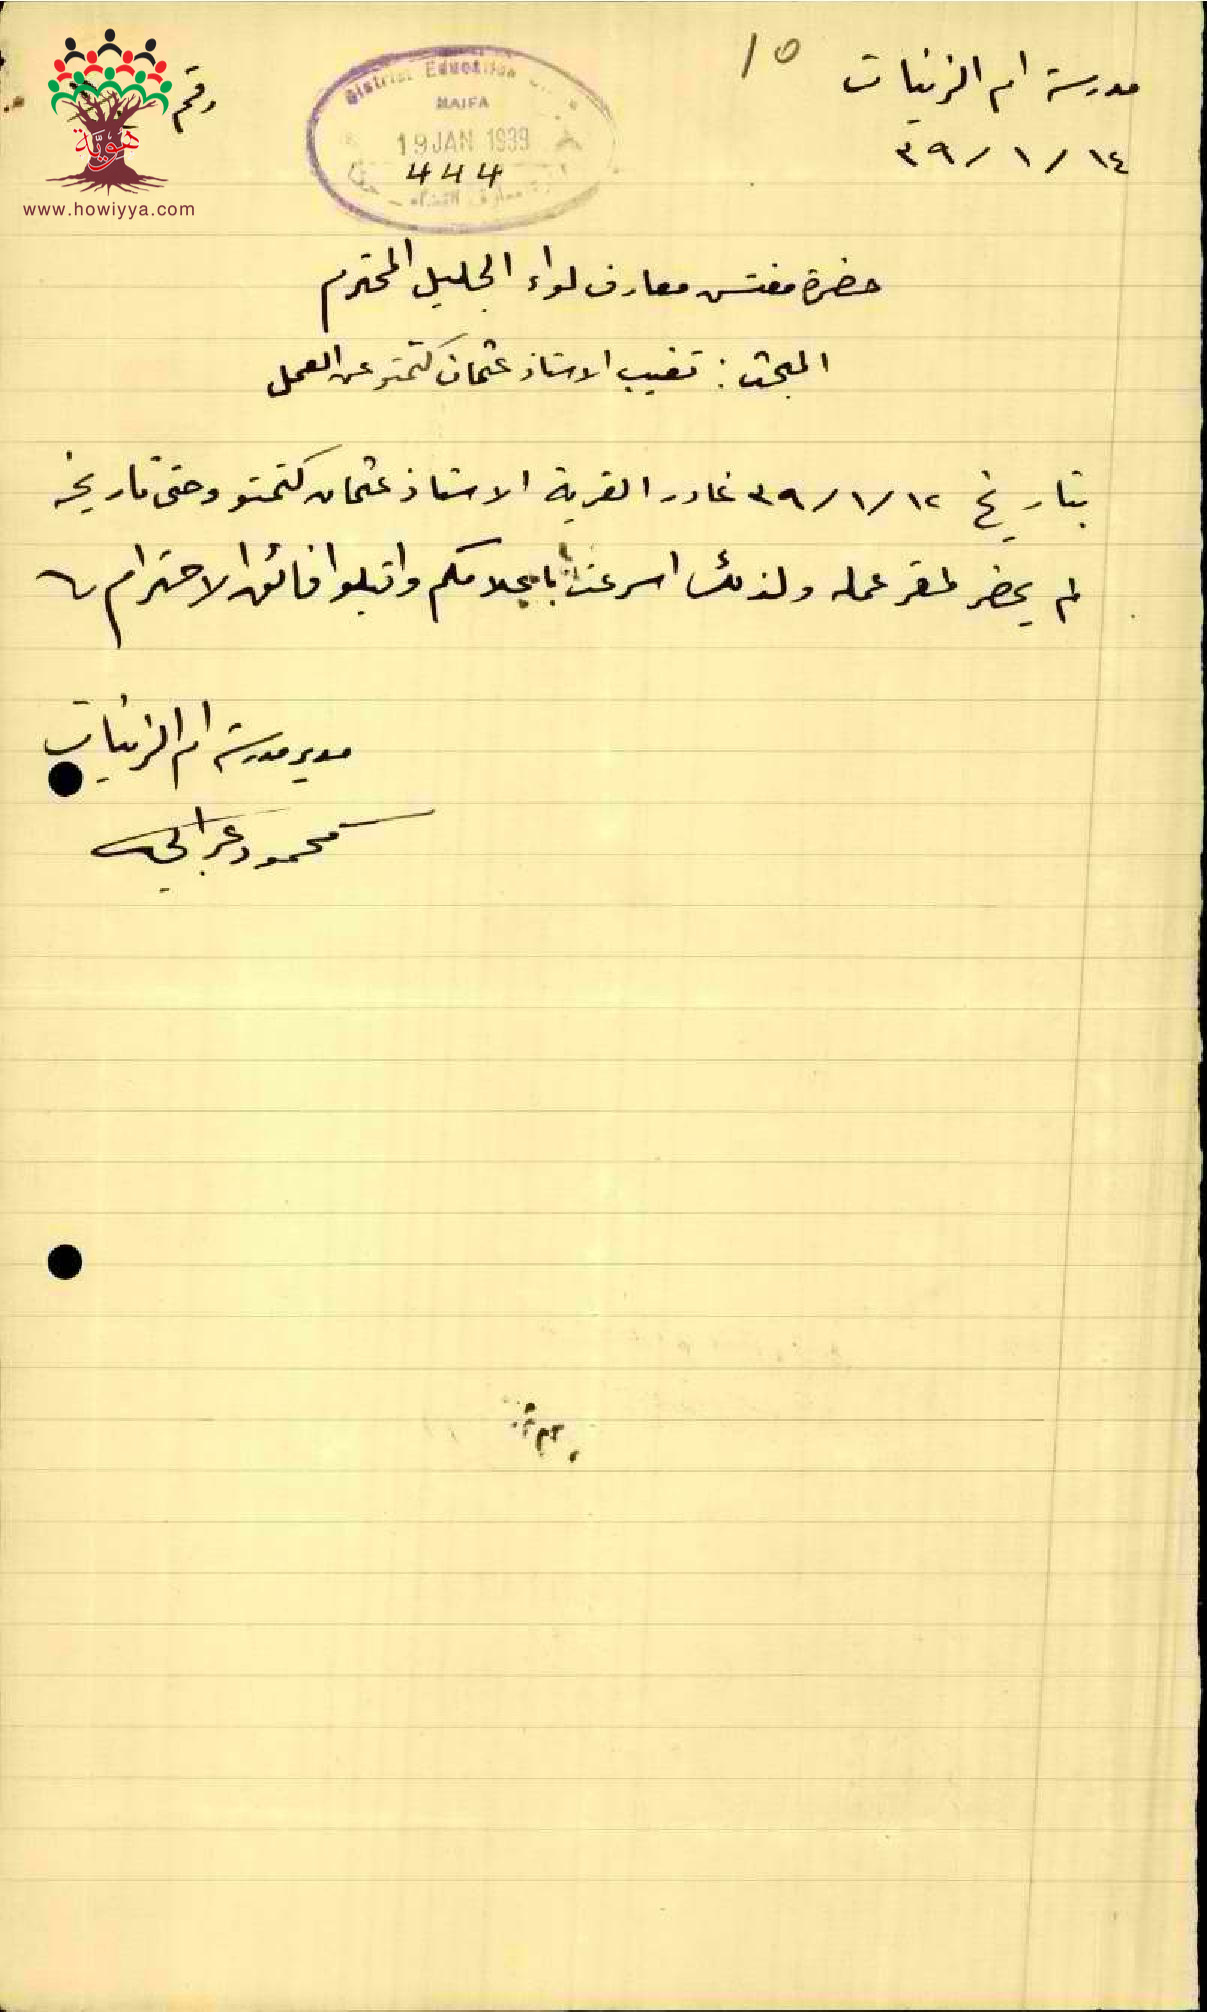 مدرسة ام الزينات
١٥
١٤ / ١ / ٣٩
رقم
هوية
www.howiyya.com
District Education
HAIFA
19 JAN 1939
444
حضرة مفتش معارف لواء الجليل المحترم
المبحث : تغيب الاستاذ عثمان كتمتو عن العمل
بتاريخ ١٢ / ١ / ٣٩ غادر القرية الاستاذ عثمان كتمتو وحتى تاريخه
لم يحضر لمقر عمله ولذلك اسرعت باعلامكم واقبلوا فائق الاحترام
مدير مدرسة ام الزينات
محمود عرابي